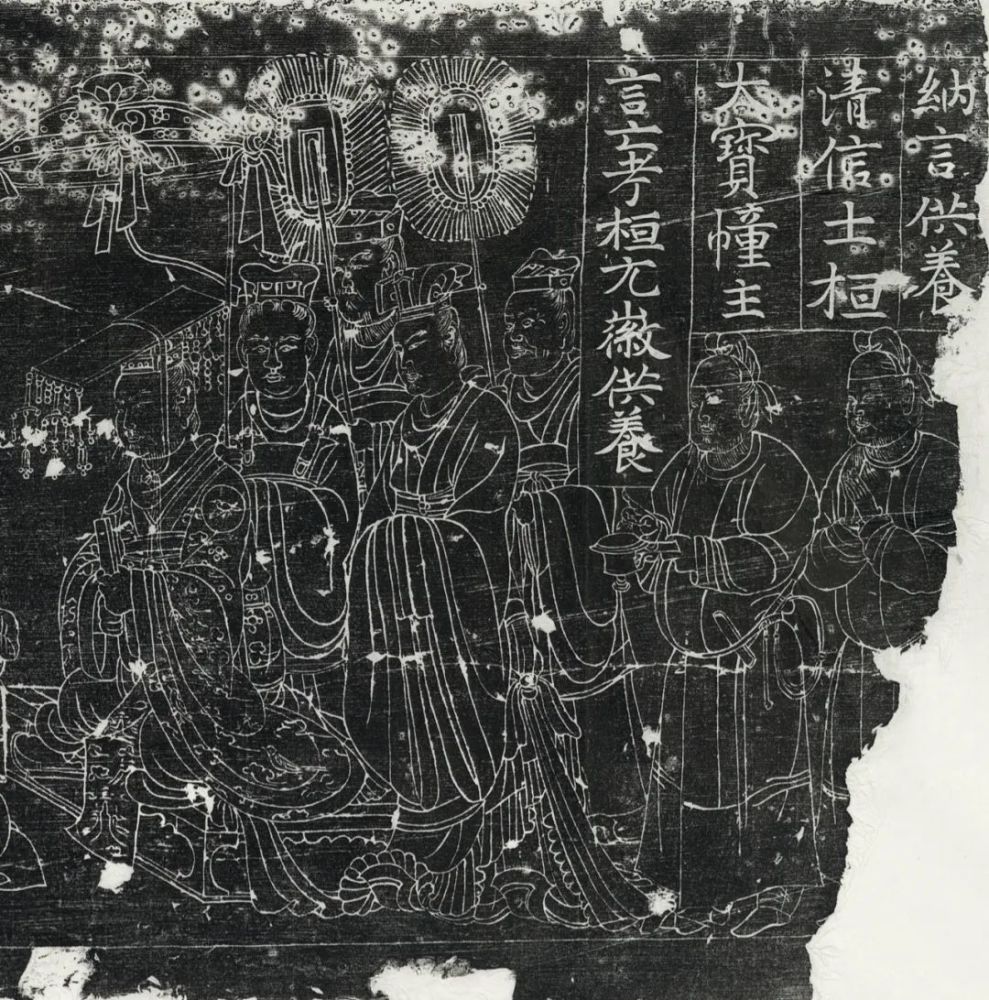 納言供養
清信士桓
大寶幢主
言亡考桓元徽供養